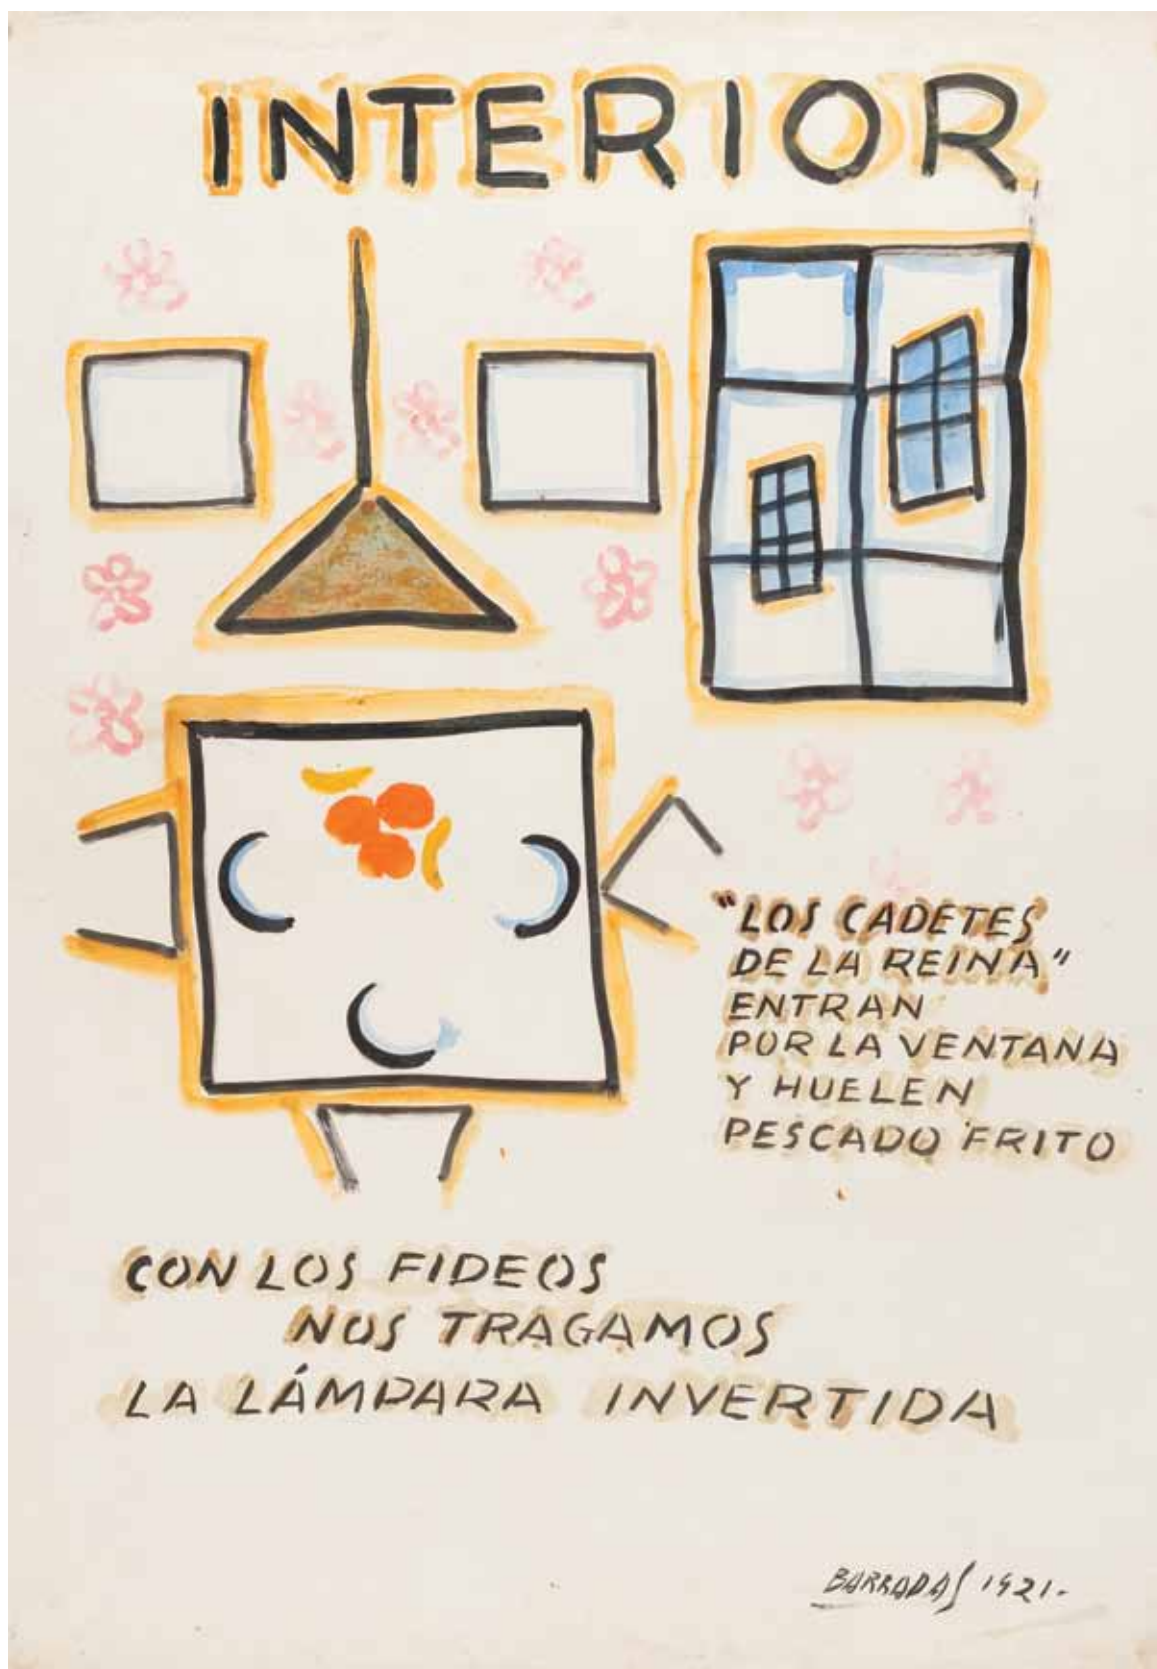 INTERIOR
"LOS CADETES
DE LA REINA"
ENTRAN
POR LA VENTANA
Y HUELEN
PESCADO FRITO
CON LOS FIDEOS
NOS TRAGAMOS
LA LÁMPARA INVERTIDA
BARRADAS 1921.